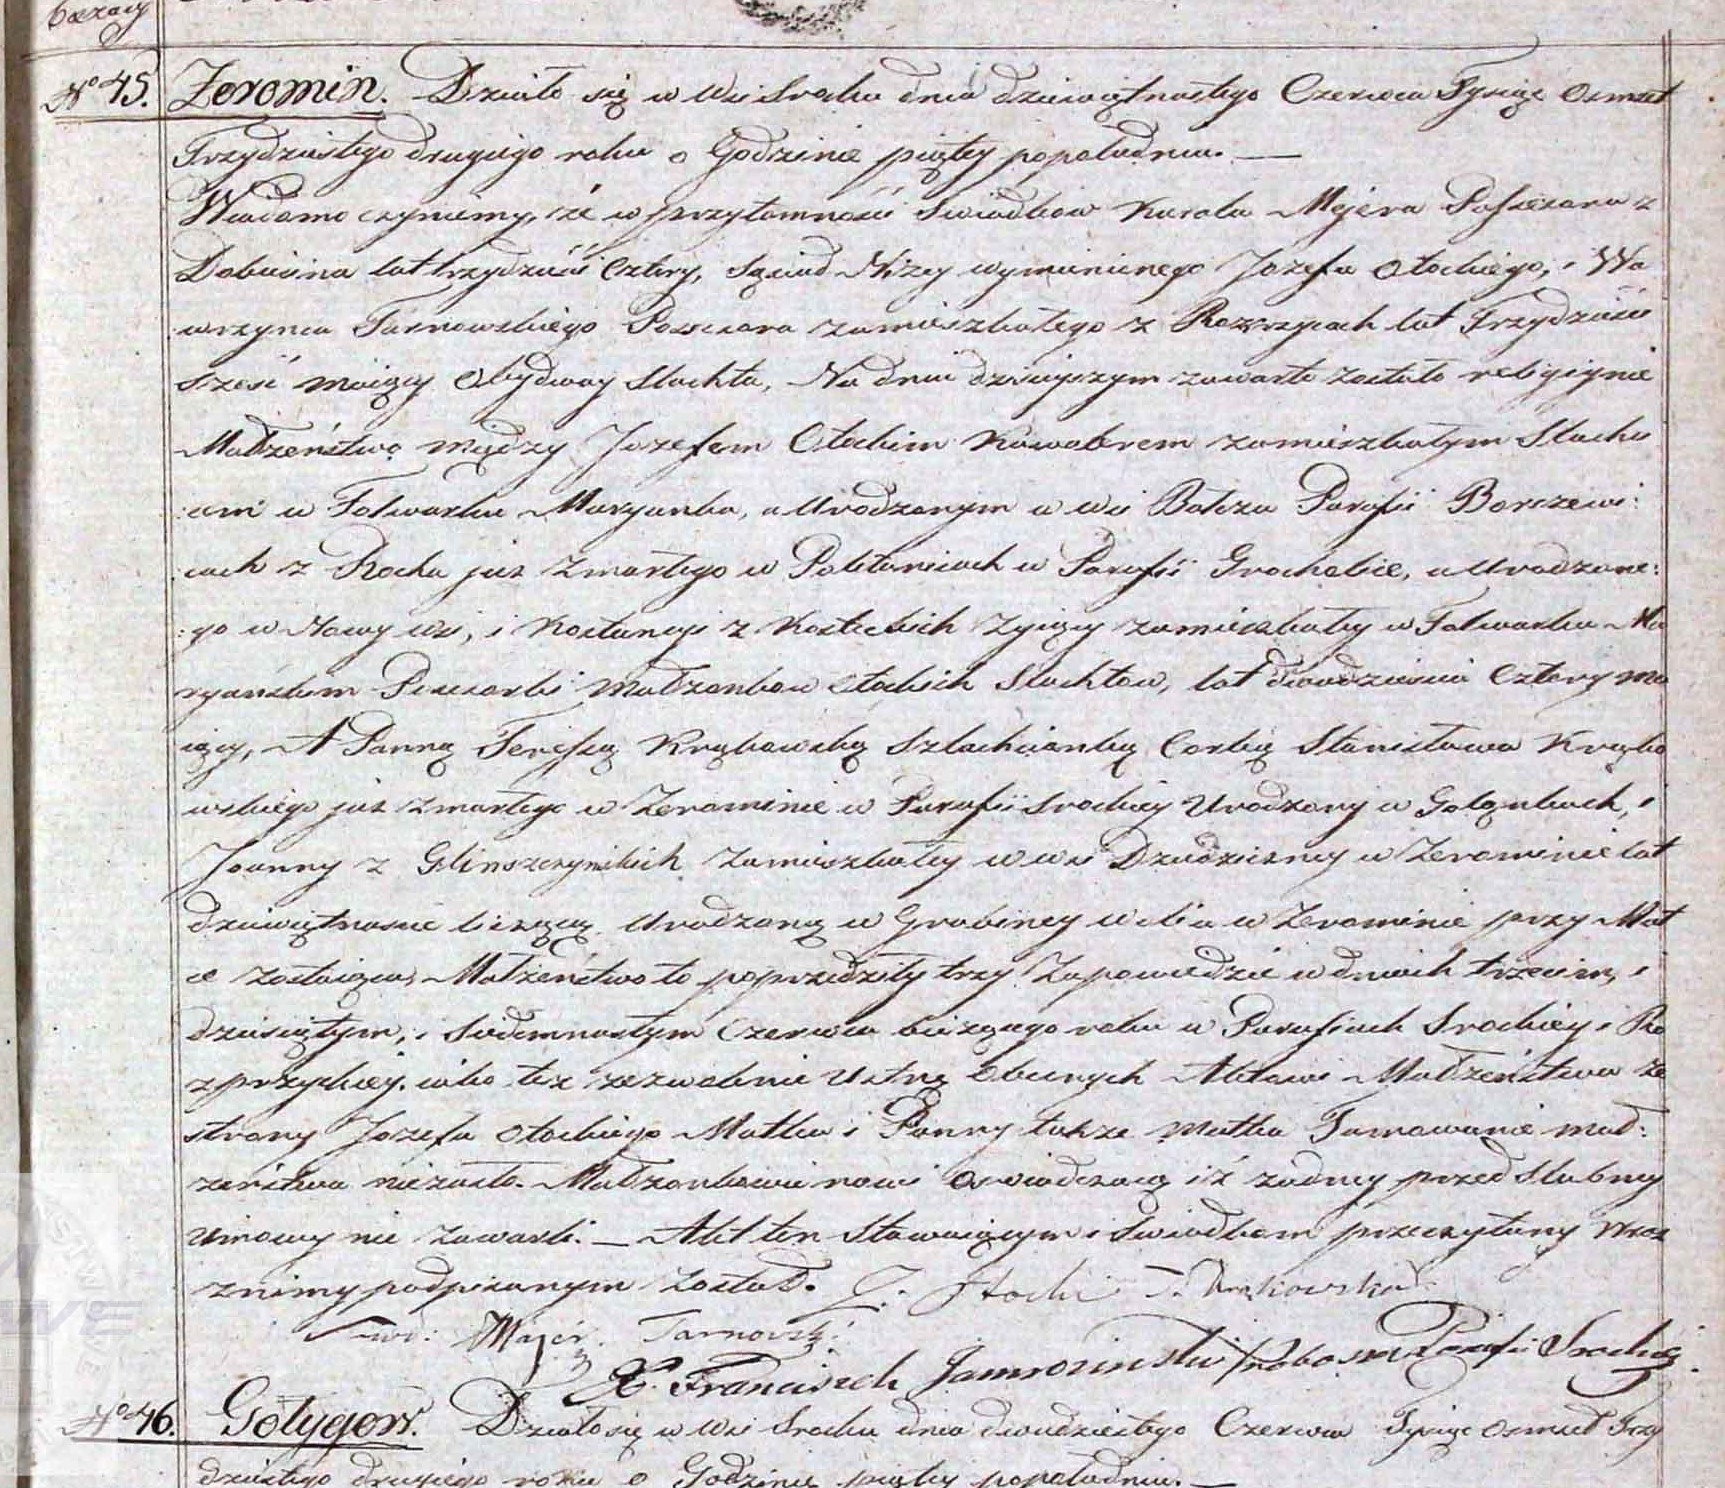 bieżący
No 45. Żeromin. Działo się w Wsi Srocku dnia dziewiętnastego Czerwca Tysiąc Osmset
Trzydziestego drugiego roku o Godzinie piątey popołudniu. —
Wiadomo czyniemy, że w przytomności Swiadkow Karola Mejera Possesora z
lat trzydzieści Cztery, Sąsiad Niżey wymienionego Jozefa Otockiego, i Wa
wrzynca Tarnowskiego Possesora zamieszkałego z lat Trzydzieści
sześć maiący Obydwaj Slachta, Na dniu dzisieyszym zawarte zostało religiynie
Małżeństwo między Jozefem Otockim Kawalerem zamieszkałym Slachci
:cem w Folwarku Maryanka, a Urodzonym w wsi Parafii Borszewi:
:cach z Rocha już Zmarłego w w Parafii Grocholice, a Urodzone:
:go w Nowy wsi, i Kostancyi z Kosteckich Zyiącey zamieszkałey w Folwarku Ma
ryańskim Possesorki Małżonkow Otockich Slachtow, lat dwadzieścia Cztery ma
iący, A Panną Teressą Krąkowską Szlachcianką Corką Stanisława Krąko
wskiego już zmarłego w Zerominie w Parafii Srockiey Urodzony w Gołąmkach, i
Joanny z zamieszkałey w wsi Dziedziczney w Zerominie lat
dziewiętnaście liczącą Urodzoną w Grabiney w Zerominie przy Mat
ce zostaiąca, Małżeństwo to poprzedziły trzy Zapowiedzie w dniach trzecim, i
dziesiątym, i Siedemnastym Czerwca bieżącego roku w Parafiach Srockiey i Ro
zprzyckiey. iako też zezwolenie Ustne Obecnych Aktowi Małżeństwa ze
strony Jozefa Otockiego Matka i Panny także Matka Tamowanie mał:
żeństwa niezaszło. Małżonkowie nowi Oswiadczaią iż żadney przed Slubney
Umowy nie zawarli. — Akt ten Stawaiącym i Swiadkom przeczytany Wraz
znimy podpisanym został. J. Otocki T. Krąkowska
Majer. Tarnovski
X. Franciszek Jamrozinski Proboszcz Parafii Srockiey.
No 46. Gołygow. Działo się w Wsi Srocku dnia dwudziestego Czerwca Tysiąc Osmset Trzy
dziestego drugiego roku o Godzinie piątey popołudniu. —